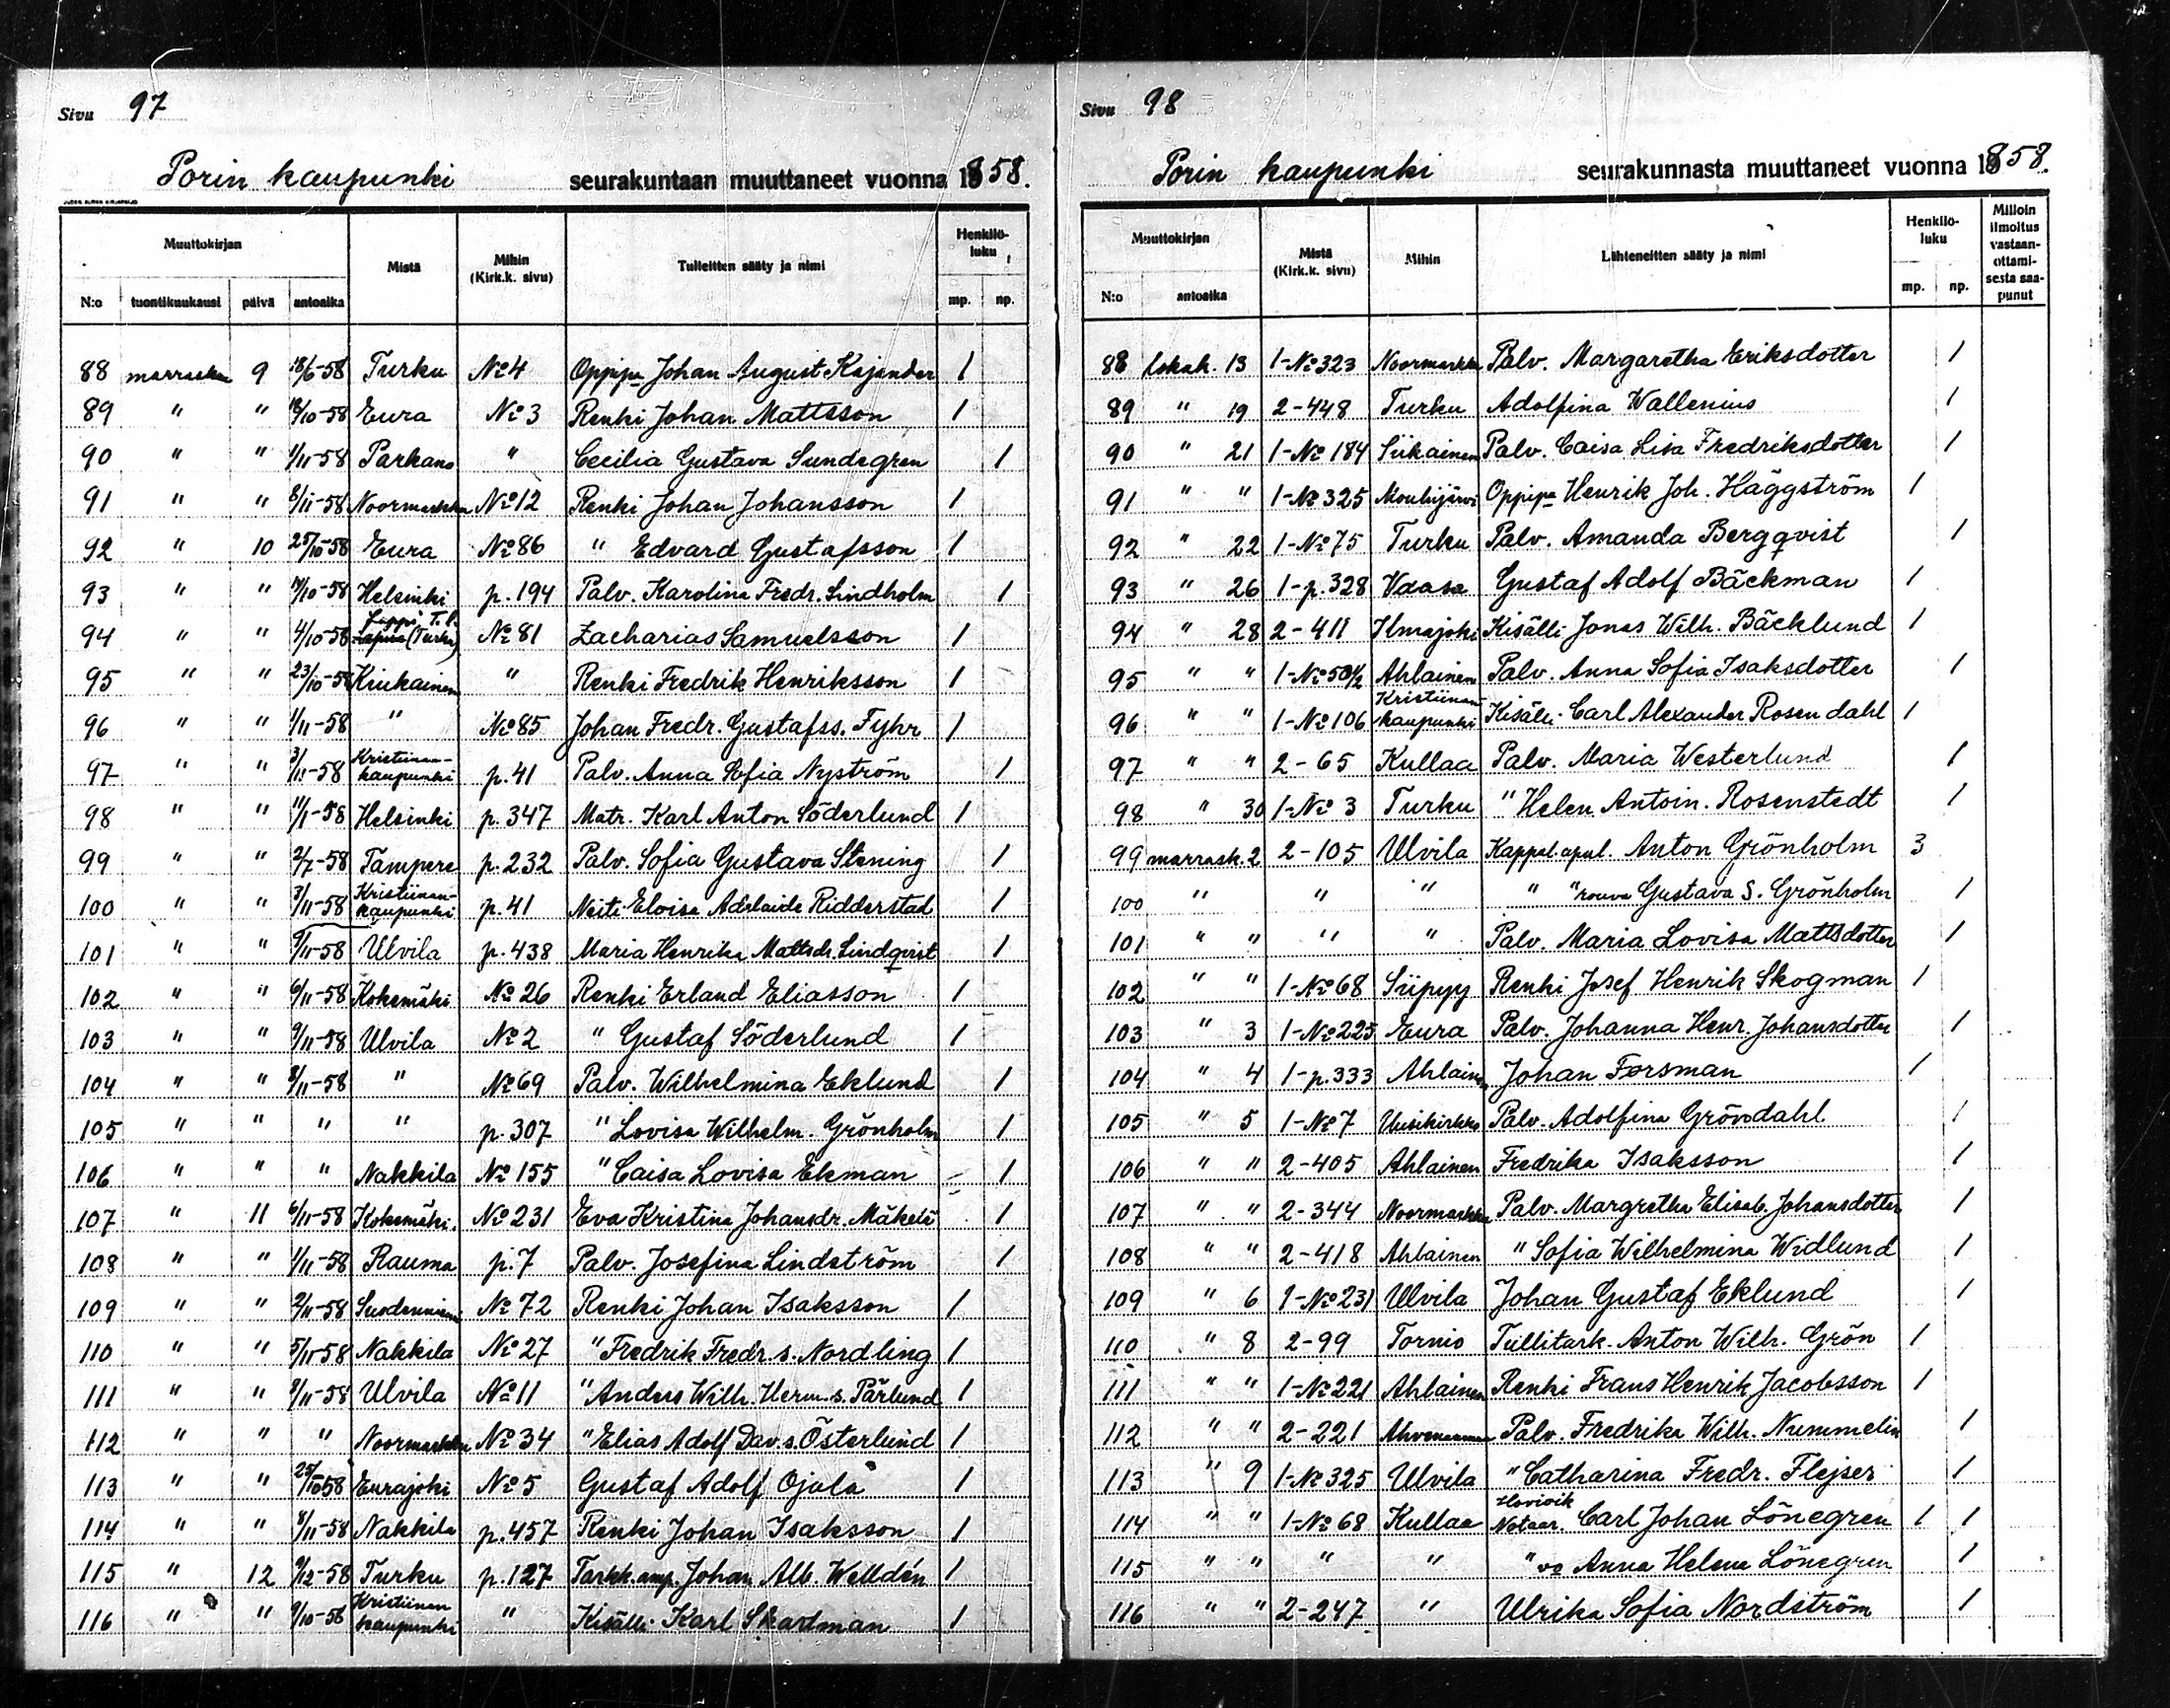 Sivu 97
Porin kaupunki seurakuntaan muuttaneet vuonna 1858.
Muuttokirjan
Mistä
Mihin (Kirk.k. sivu)
Tulleitten sääty ja nimi
Henkilö-luku
N:o tuontikuukausi päivä antoaika mp. np.
88 marrasku 9 18/6-58 Turku No 4 Oppip. Johan August Kajander 1
89 " " 18/10-58 Eura No 3 Renki Johan Mattsson 1
90 " " 1/11-58 Parkano " Cecilia Gustava Sundegren 1
91 " " 8/11-58 Noormarkku No 12 Renki Johan Johansson 1
92 " 10 25/10-58 Eura No 86 " Edvard Gustafsson 1
93 " " 19/10-58 Helsinki p. 194 Palv. Karolina Fredr. Lindholm 1
94 " " 4/10-58 (Turku) No 81 Zacharias Samuelsson 1
95 " " 23/10-58 Kiukainen " Renki Fredrik Henriksson 1
96 " " 1/11-58 " No 85 Johan Fredr. Gustafss. Fyhr 1
97 " " 3/11-58 Kristiinan-kaupunki p. 41 Palv. Anna Sofia Nyström 1
98 " " 11/1-58 Helsinki p. 347 Matr. Karl Anton Söderlund 1
99 " " 2/7-58 Tampere p. 232 Palv. Sofia Gustava Stening 1
100 " " 3/11-58 Kristiinan-kaupunki p. 41 Neiti Eloisa Adelaide Ridderstad 1
101 " " 9/11-58 Ulvila p. 438 Maria Henrika Mattsdr. Lindqvist 1
102 " " 6/11-58 Kokemäki No 26 Renki Erland Eliasson 1
103 " " 9/11-58 Ulvila No 2 " Gustaf Söderlund 1
104 " " 8/11-58 " No 69 Palv. Wilhelmina Eklund 1
105 " " " " p. 307 " Lovisa Wilhelm. Grönholm 1
106 " " " Nakkila No 155 " Caisa Lovisa Ekman 1
107 " 11 6/11-58 Kokemäki. No 231 Eva Kristina Johansdr. Mäkelä 1
108 " " 1/11-58 Rauma p. 7 Palv. Josefina Lindström 1
109 " " 2/11-58 Suodenniemi No 72 Renki Johan Isaksson 1
110 " " 5/11-58 Nakkila No 27 " Fredrik Fredr. s. Nordling 1
111 " " 9/11-58 Ulvila No 11 " Anders Wilh. Herm. s. Pärlund 1
112 " " " Noormarkku No 34 " Elias Adolf Dav. s. Österlund 1
113 " " 25/10-58 Eurajoki No 5 Gustaf Adolf Ojala 1
114 " " 8/11-58 Nakkila p. 457 Renki Johan Isaksson 1
115 " 12 9/12-58 Turku p. 127 Tarkk.amp. Johan Alb. Welldén 1
116 " " 9/10-56 Kristiinan kaupunki " Kisälli Karl Skartman 1
Sivu 98
Porin kaupunki seurakunnasta muuttaneet vuonna 1858.
Muuttokirjan
Mistä (Kirk.k. sivu)
Mihin
Lähteneitten sääty ja nimi
Henkilö-luku
Milloin ilmoitus vastaan-ottami-sesta saa-punut
N:o antoaika mp. np.
88 lokak. 13 1-No 323 Noormarkku Palv. Margaretha Eriksdotter 1
89 " 19 2-448 Turku Adolfina Wallenius 1
90 " 21 1-No 184 Siikainen Palv. Caisa Lisa Fredriksdotter 1
91 " " 1-No 325 Mouhijärvi Oppip. Henrik Joh. Häggström 1
92 " 22 1-No 75 Turku Palv. Amanda Bergqvist 1
93 " 26 1-p. 328 Vaasa Gustaf Adolf Bäckman 1
94 " 28 2-411 Ilmajoki Kisälli Jonas Wilh. Bäcklund 1
95 " " 1-No 50 1/2 Ahlainen Palv. Anna Sofia Isaksdotter 1
96 " " 1-No 106 Kristiinan-kaupunki Kisälli Carl Alexander Rosendahl 1
97 " " 2-65 Kullaa Palv. Maria Westerlund 1
98 " 30 1-No 3 Turku " Helen Antoin. Rosenstedt 1
99 marrask. 2 2-105 Ulvila Kappal.apul. Anton Grönholm 3
100 " " " " " rouva Gustava S. Grönholm 1
101 " " " " Palv. Maria Lovisa Mattsdotter 1
102 " " 1-No 68 Siipyy Renki Josef Henrik Skogman 1
103 " 3 1-No 225 Eura Palv. Johanna Henr. Johansdotter 1
104 " 4 1-p. 333 Ahlainen Johan Forsman 1
105 " 5 1-No 7 Uusikirkko Palv. Adolfina Gröndahl 1
106 " " 2-405 Ahlainen Fredrika Isaksson 1
107 " " 2-344 Noormarkku Palv. Margretha Elisab. Johansdotter 1
108 " " 2-418 Ahlainen " Sofia Wilhelmina Widlund 1
109 " 6 1-No 231 Ulvila Johan Gustaf Eklund 1
110 " 8 2-99 Tornio Tullitark. Anton Wilh. Grön 1
111 " " 1-No 221 Ahlainen Renki Frans Henrik Jacobsson 1
112 " " 2-221 Ahvenanmaa Palv. Fredrika Wilh. Nummelin 1
113 " 9 1-No 325 Ulvila " Catharina Fredr. Flejser 1
114 " " 1-No 68 Kullaa Hovioik Notaar. Carl Johan Lönegren 1 1
115 " " " " " vo Anna Helena Lönegren 1
116 " " 2-247 " Ulrika Sofia Nordström 1